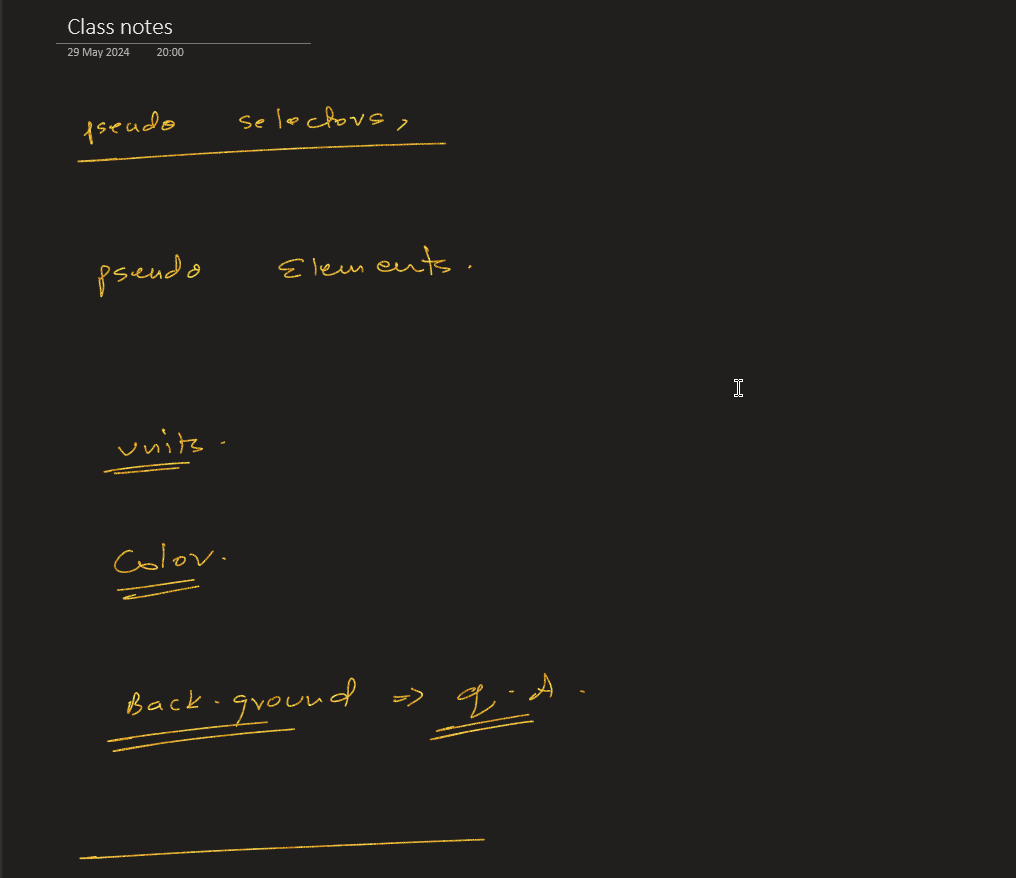 Class notes
29 May 2024 20:00
pseudo selectors,
pseudo Elements.
units.
Color.
Back-ground => q. A.